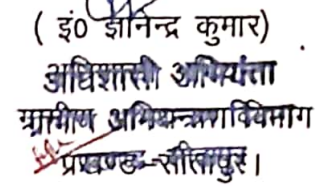 ( इं0 ज्ञानेन्द्र कुमार)
अधिशासी अभियंता
ग्रामीण अभियन्त्रण विभाग
प्रखण्ड-सीतापुर।